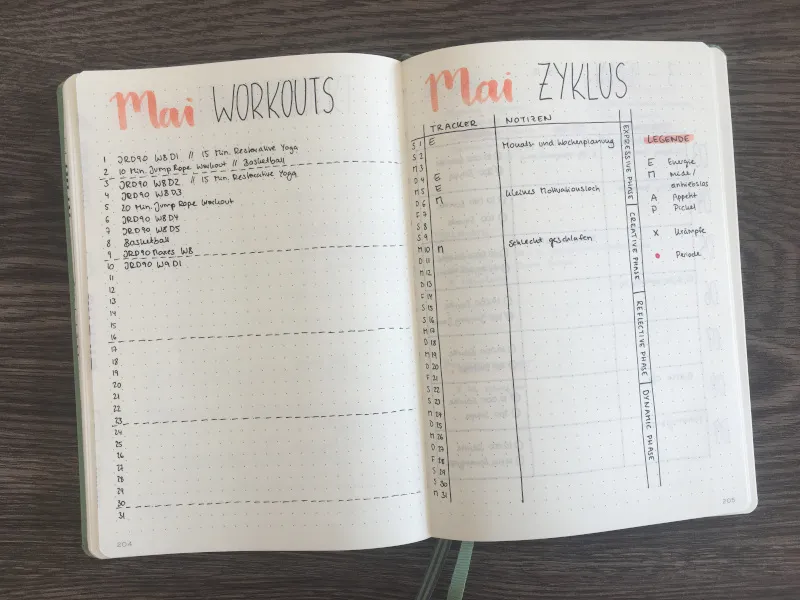 Mai WORKOUTS
1 JRD90 W8D1 // 15 Min. Restorative Yoga
2 10 Min. Jump Rope Workout // Basketball
3 JRD90 W8D2 // 15 Min. Restorative Yoga
4 JRD90 W8D3
5 20 Min. Jump Rope Workout
6 JRD90 W8D4
7 JRD90 W8D5
8 Basketball
9 JRD90 W8
10 JRD90 W9D1
11
12
13
14
15
16
17
18
19
20
21
22
23
24
25
26
27
28
29
30
31
204
Mai ZYKLUS
TRACKER NOTIZEN
S 1 E Monats- und Wochenplanung
S 2
M 3
D 4 E
M 5 E kleines Motivationsloch
D 6 M
F 7
S 8
S 9
M 10 M schlecht geschlafen
D 11
M 12
D 13
F 14
S 15
S 16
M 17
D 18
M 19
D 20
F 21
S 22
S 23
M 24
D 25
M 26
D 27
F 28
S 29
S 30
M 31
EXPRESSIVE PHASE
CREATIVE PHASE
REFLECTIVE PHASE
DYNAMIC PHASE
LEGENDE
E Energie
M müde/
antriebslos
A Appetit
P Pickel
X Krämpfe
Periode
205